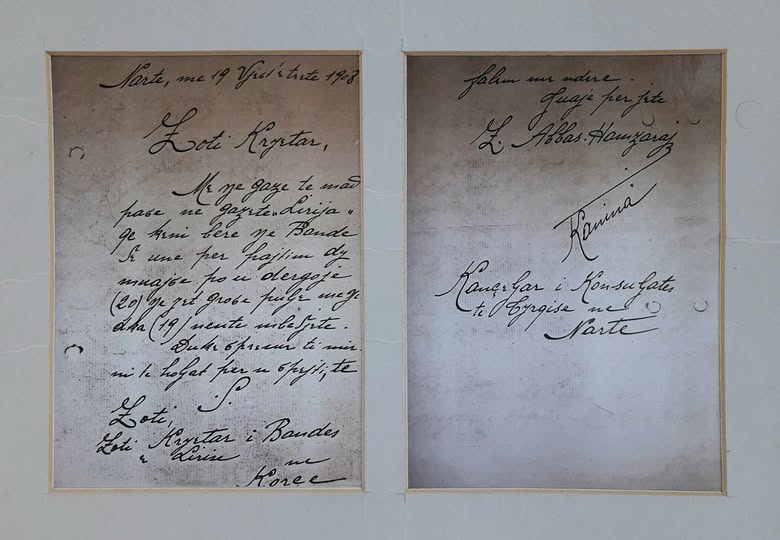 Narte, me 19 Vjeshtrete 1908
Zoti Kryetar,
Me nje gaze te mad
pase ne gazete "Lirija"
qe keni bere nje Bande
Se une per pajtim dy
muajse po u dergoje
(20) nje zet grose pulje me ge
dha (19) nente mbedjete.
Duke spresur ti mir
ni te holat per u
S.
Zoti,
Zoti Kryetar i Bandes
e Lirise ne
Korçe
falem me ndere.
juaje per jete
Z. Abbas. Hamzaraj
Kanina
Kançelar i Konsulates
te Tyrqise ne
Narte